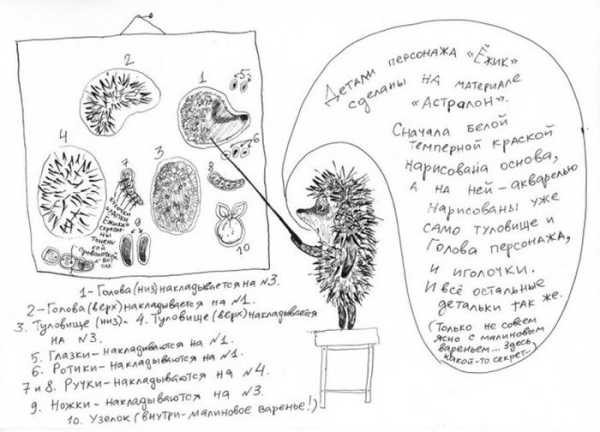 2
1
5
6
4
3
7
8
9
10
Детали персонажа «Ёжик»
сделаны на материале
«Астралон».
Сначала белой
темперной краской
нарисована основа,
а на ней - акварелью
нарисованы уже
само туловище и
голова персонажа,
и иголочки.
И всё остальные
детальки так же.
(Только не совсем
ясно с малиновым
вареньем... Здесь
какой-то секрет...)
1 - Голова (низ) накладывается на №3.
2 - Голова (верх) накладывается на №1.
3. Туловище (низ). 4. Туловище (верх) накладывается
на №3.
5. Глазки - накладываются на №1.
6. Ротики - накладываются на №1.
7 и 8. Ручки - накладываются на №4.
9. Ножки - накладываются на №3.
10. Узелок (внутри - малиновое варенье!)